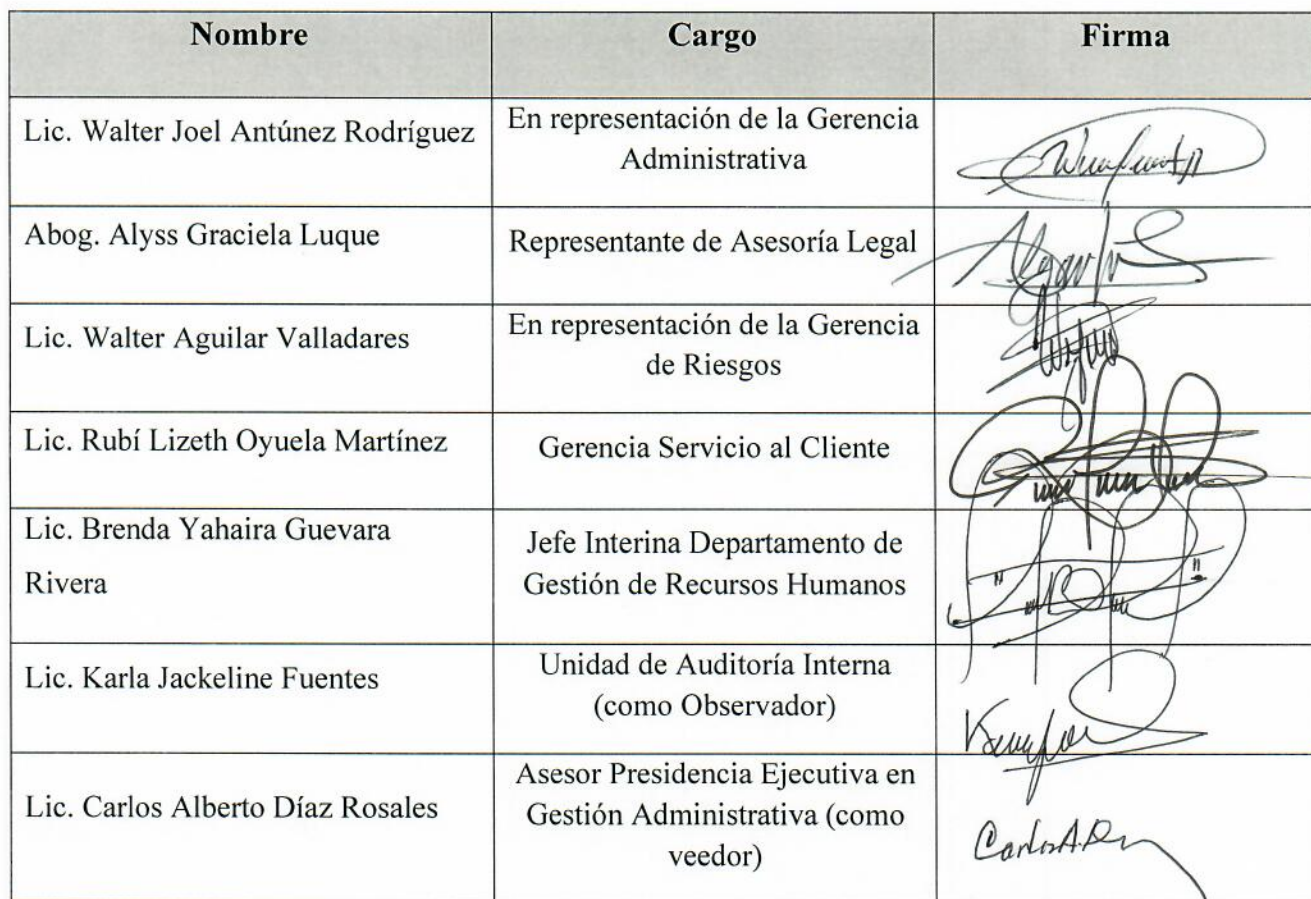 Nombre Cargo Firma
Lic. Walter Joel Antúnez Rodríguez
En representación de la Gerencia
Administrativa
Abog. Alyss Graciela Luque
Representante de Asesoría Legal
Lic. Walter Aguilar Valladares
En representación de la Gerencia
de Riesgos
Lic. Rubí Lizeth Oyuela Martínez
Gerencia Servicio al Cliente
Lic. Brenda Yahaira Guevara
Rivera
Jefe Interina Departamento de
Gestión de Recursos Humanos
Lic. Karla Jackeline Fuentes
Unidad de Auditoría Interna
(como Observador)
Lic. Carlos Alberto Díaz Rosales
Asesor Presidencia Ejecutiva en
Gestión Administrativa (como
veedor)